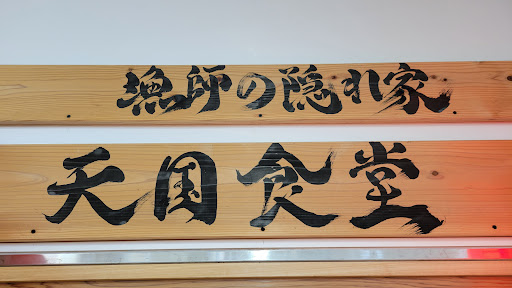 漁師の隠れ家
天国食堂